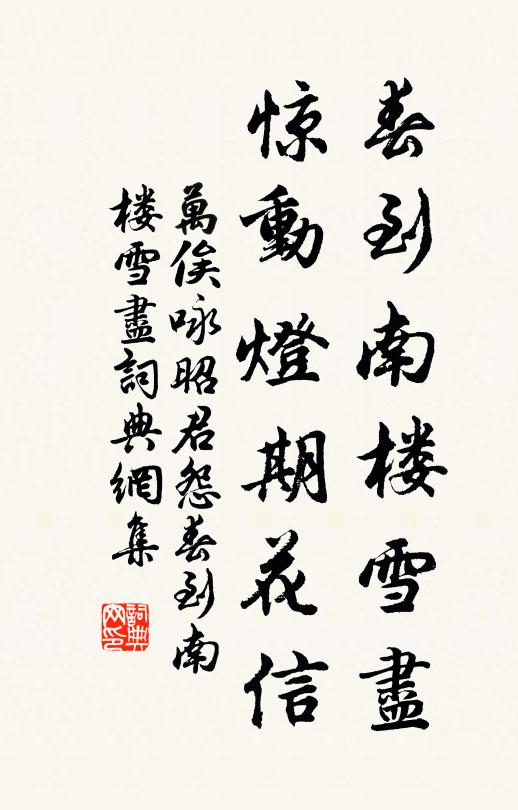 春到南楼雪盡
惊動燈期花信
萬俟咏昭君怨春到南
楼雪盡詞典網集
詞典
网印